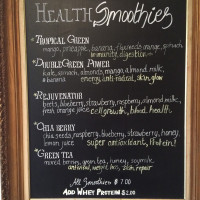 HEALTH Smoothies
TROPICAL GREEN
mango, pineapple, banana, flaxseeds, orange, spinach
immunity, digestion
DOUBLE GREEN POWER
kale, spinach, almonds, mango, almond milk,
& banana energy, anti-radical, skin, glow
REJUVENATOR
beets, blueberry, strawberry, raspberry, almond milk,
fresh orange juice cell growth, blood health
CHIA BERRY
chia seeds, raspberry, blueberry, strawberry, honey,
lemon juice super antioxidants, protein!
GREEN TEA
mixed berries, green tea, honey, soymilk,
antioxidant, skin repair
All Smoothies $7.00
ADD WHEY PROTEIN $2.00